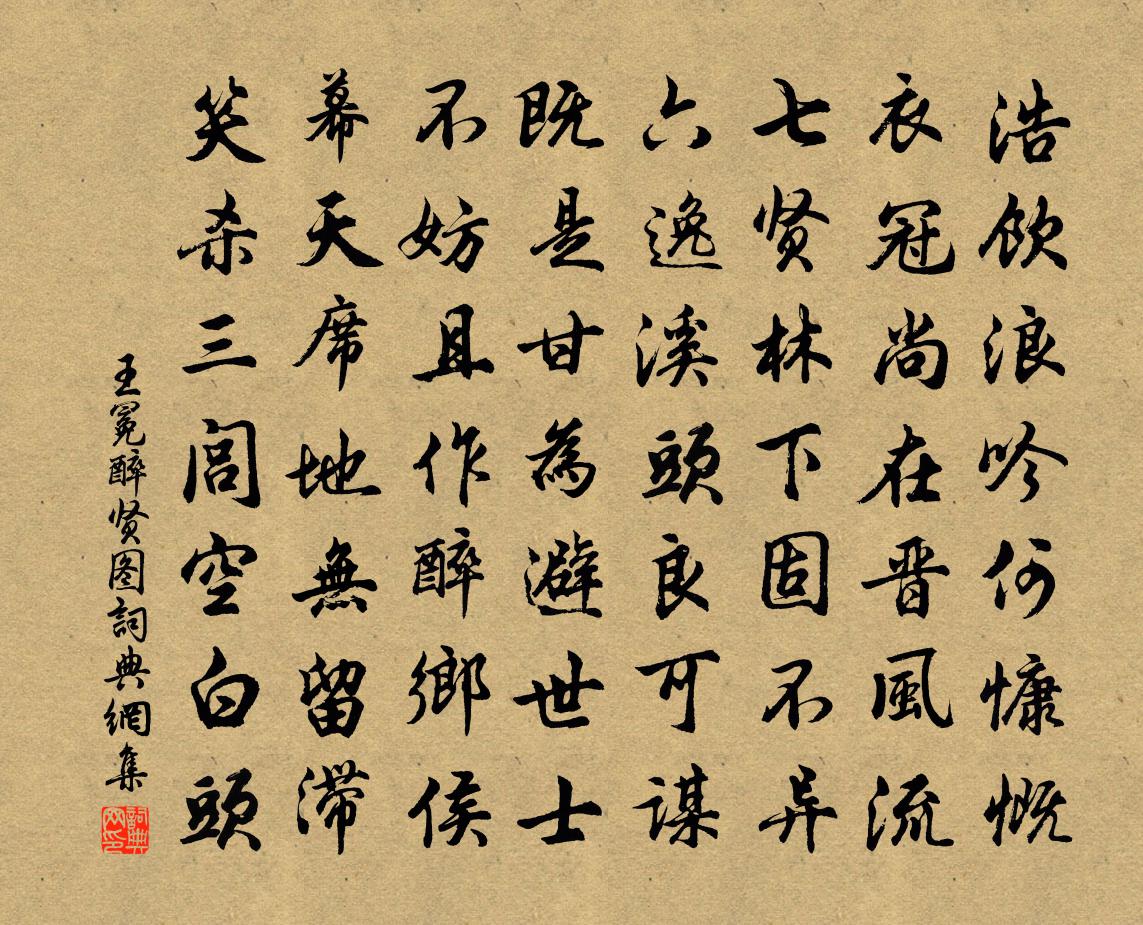 浩飲浪吟何慷慨
衣冠尚在晋風流
七贤林下固不异
六逸溪頭良可謀
既是甘為避世士
不妨且作醉鄉侯
幕天席地無留滯
笑杀三閭空白頭
王冕醉贤图詞典網集
詞典网印